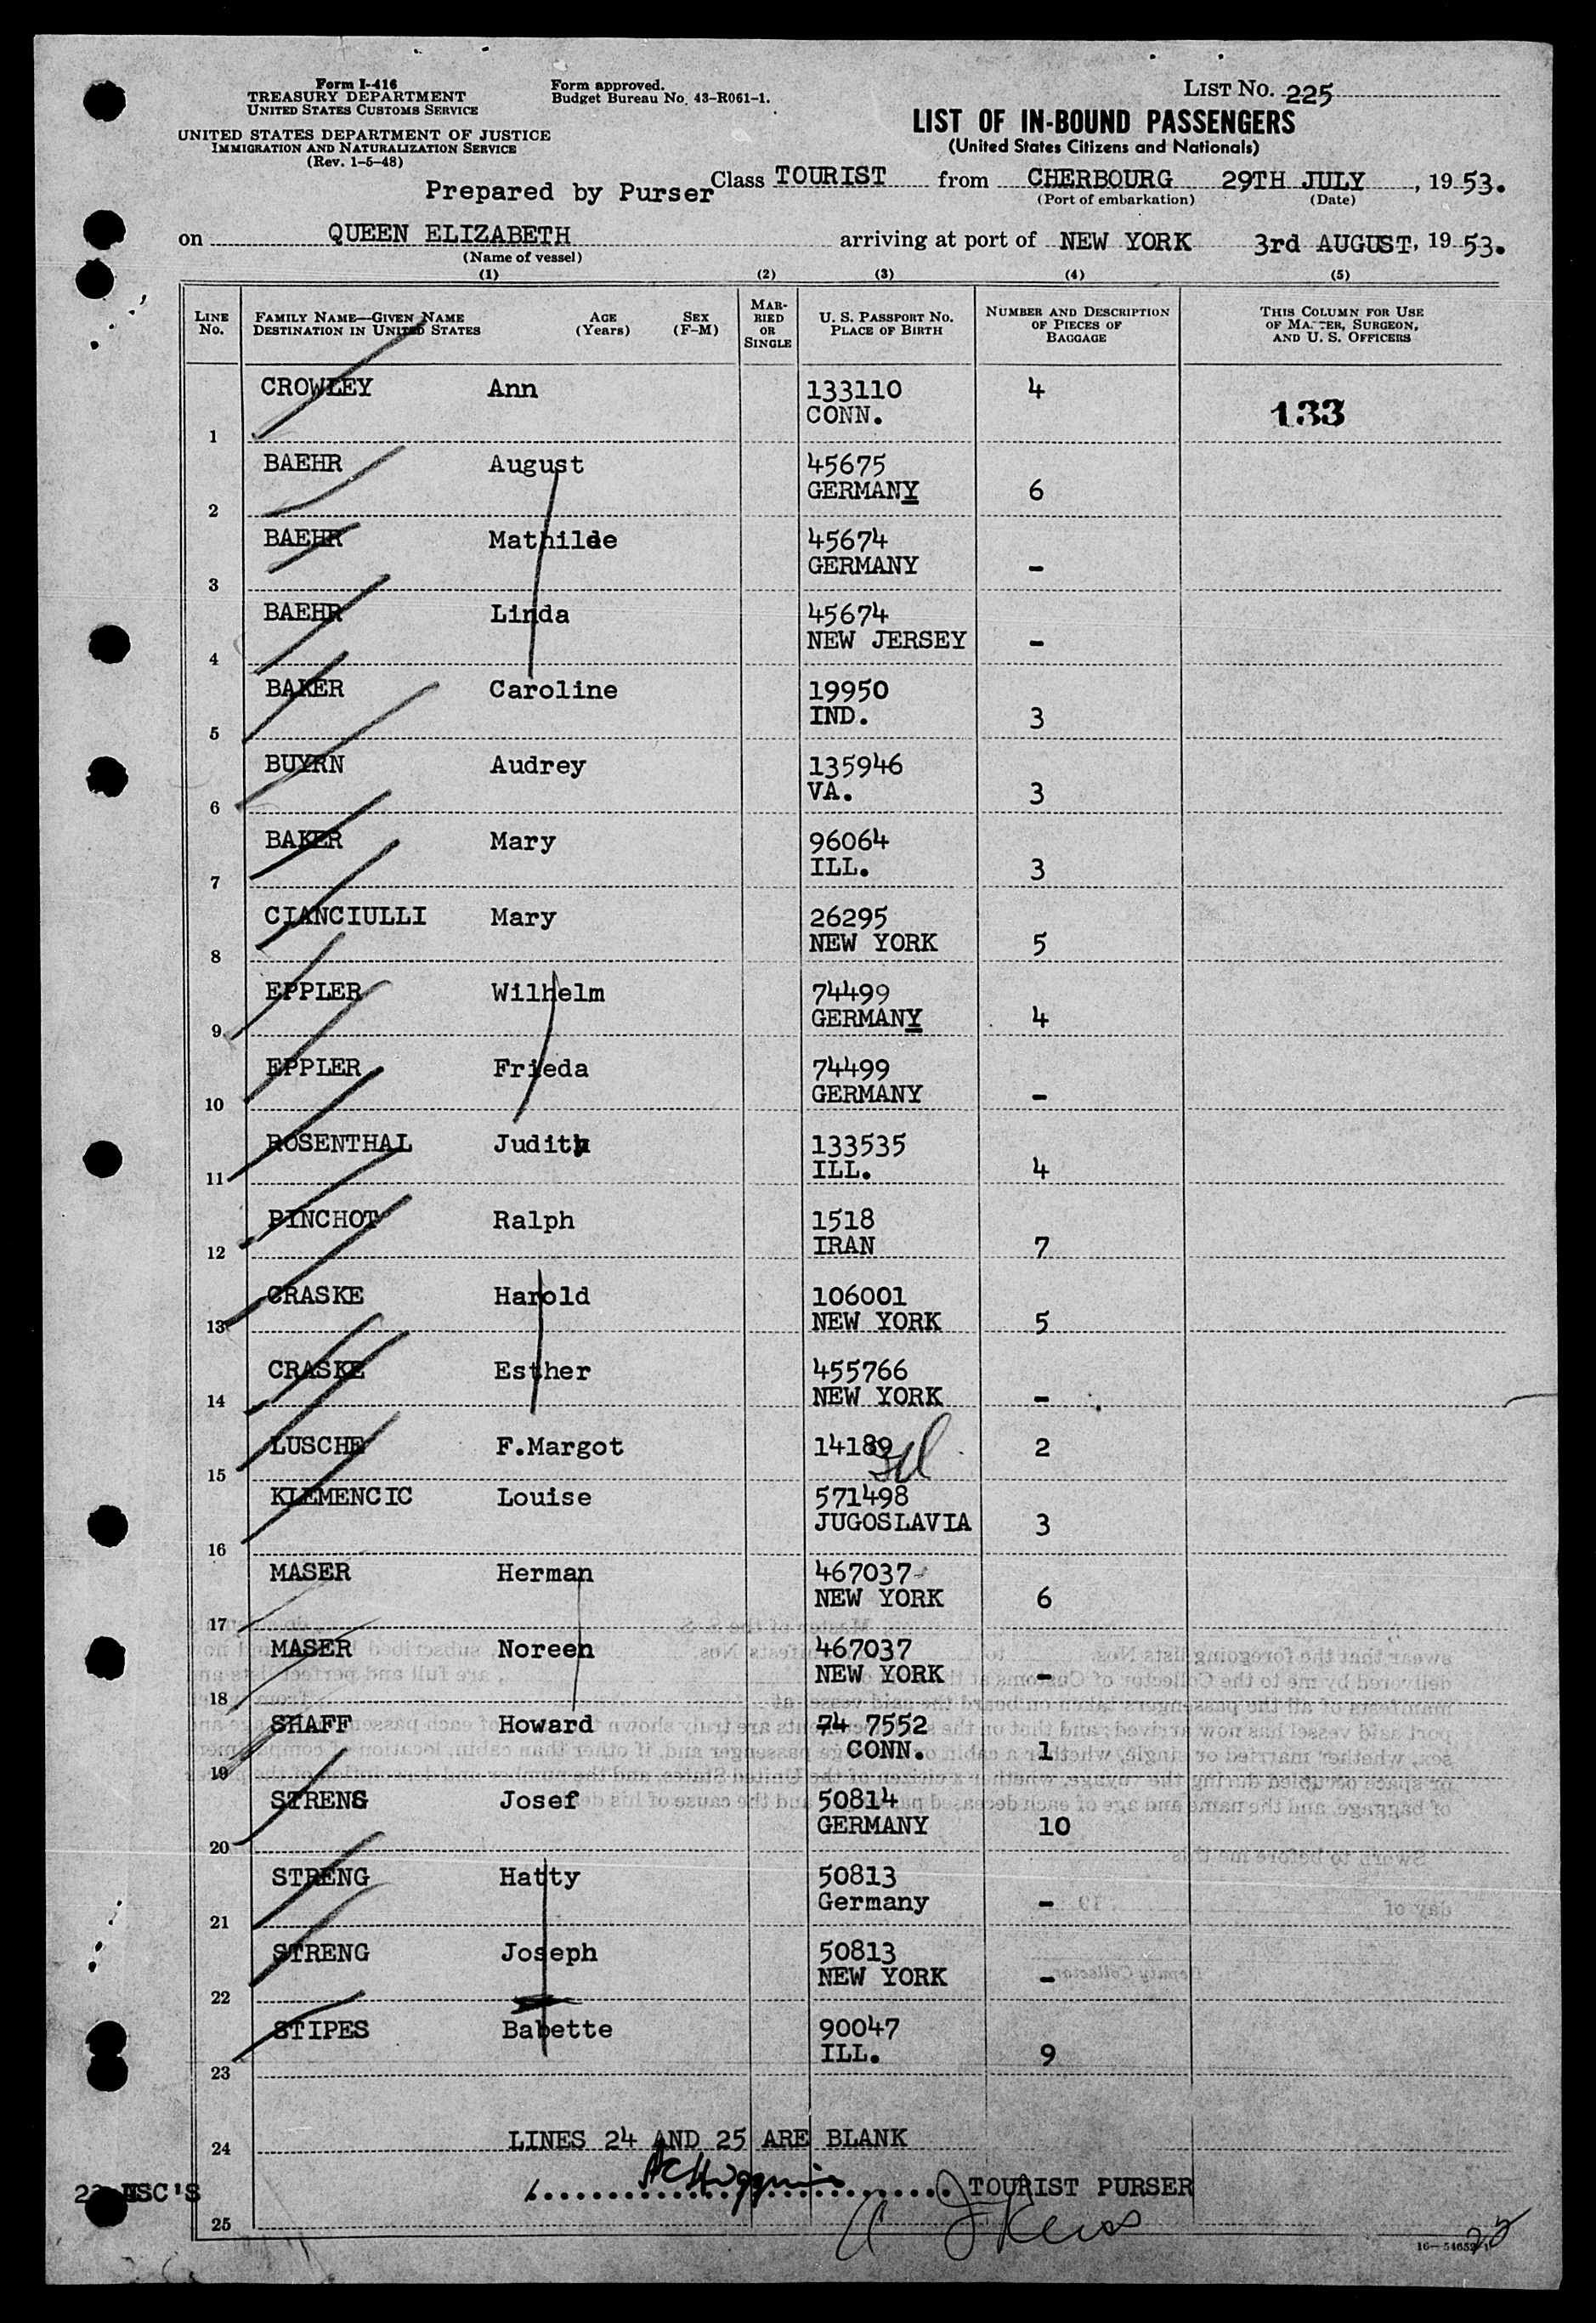 Form I-416
TREASURY DEPARTMENT
UNITED STATES CUSTOMS SERVICE
UNITED STATES DEPARTMENT OF JUSTICE
IMMIGRATION AND NATURALIZATION SERVICE
(Rev. 1-5-48)
Form approved.
Budget Bureau No. 43-R061-1.
LIST NO. 225
LIST OF IN-BOUND PASSENGERS
(United States Citizens and Nationals)
Prepared by Purser Class TOURIST from CHERBOURG 29TH JULY, 1953.
(Port of embarkation) (Date)
on QUEEN ELIZABETH arriving at port of NEW YORK 3rd AUGUST, 1953.
(Name of vessel)
(1) (2) (3) (4) (5)
LINE No. FAMILY NAME—GIVEN NAME DESTINATION IN UNITED STATES AGE (Years) SEX (F-M) MARRIED OR SINGLE U. S. PASSPORT NO. PLACE OF BIRTH NUMBER AND DESCRIPTION OF PIECES OF BAGGAGE THIS COLUMN FOR USE OF MASTER, SURGEON, AND U. S. OFFICERS
CROWLEY Ann 133110 4
CONN. 133
1
BAEHR August 45675
GERMANY 6
2
BAEHR Mathilde 45674
GERMANY -
3
BAEHR Linda 45674
NEW JERSEY -
4
BAKER Caroline 19950
IND. 3
5
BUYRN Audrey 135946
VA. 3
6
BAKER Mary 96064
ILL. 3
7
CIANCIULLI Mary 26295
NEW YORK 5
8
EPPLER Wilhelm 74499
GERMANY 4
9
EPPLER Frieda 74499
GERMANY -
10
ROSENTHAL Judith 133535
ILL. 4
11
PINCHOT Ralph 1518
IRAN 7
12
CRASKE Harold 106001
NEW YORK 5
13
CRASKE Esther 455766
NEW YORK -
14
LUSCHE F.Margot 14189 2
15
KLEMENCIC Louise 571498
JUGOSLAVIA 3
16
MASER Herman 467037
NEW YORK 6
17
MASER Noreen 467037
NEW YORK -
18
SHAFF Howard 74 7552
CONN. 1
19
STRENG Josef 50814
GERMANY 10
20
STRENG Hatty 50813
Germany -
21
STRENG Joseph 50813
NEW YORK -
22
STIPES Babette 90047
ILL. 9
23
LINES 24 AND 25 ARE BLANK
24
USC'S TOURIST PURSER
25
23